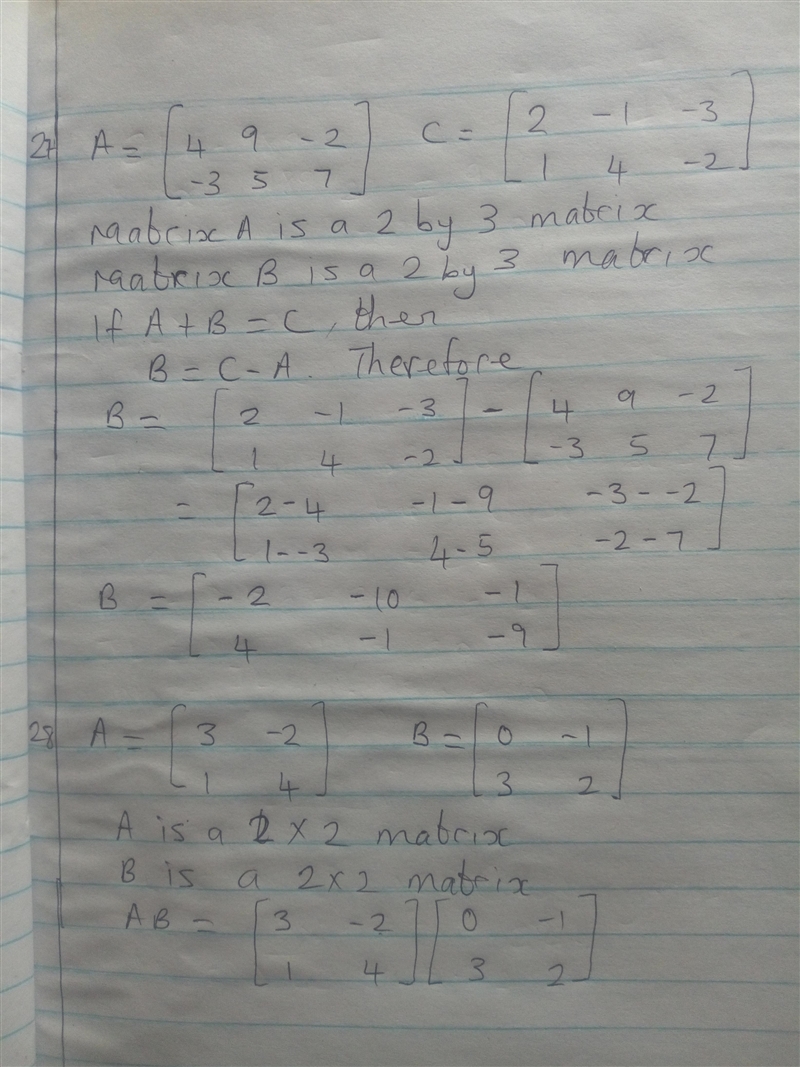 27 A = [ 4 9 -2 ] C = [ 2 -1 -3 ]
-3 5 7 1 4 -2
Matrix A is a 2 by 3 matrix
Matrix B is a 2 by 3 matrix
If A + B = C, then
B = C - A. Therefore
B = [ 2 -1 -3 ] - [ 4 9 -2 ]
1 4 -2 -3 5 7
= [ 2-4 -1-9 -3--2 ]
1--3 4-5 -2-7
B = [ -2 -10 -1 ]
4 -1 -9
28 A = [ 3 -2 ] B = [ 0 -1 ]
1 4 3 2
A is a 2 × 2 matrix
B is a 2×2 matrix
AB = [ 3 -2 ] [ 0 -1 ]
1 4 3 2